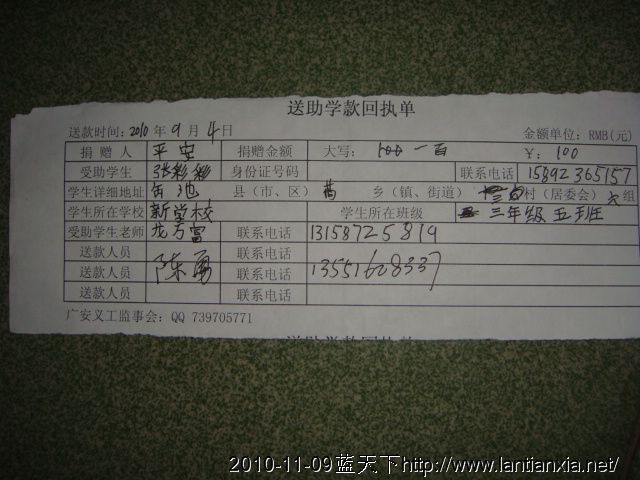 送助学款回执单
送款时间：2010 年 9 月 4 日 金额单位：RMB(元)
捐赠人 平安 捐赠金额 大写： 一百 ￥：100
受助学生 张彩彩 身份证号码 联系电话 15892365157
学生详细地址 岳池 县（市、区） 乡（镇、街道） 村（居委会） 六 组
学生所在学校 新学校 学生所在班级 三年级五班
受助学生老师 龙方富 联系电话 13158725819
送款人员 联系电话
送款人员 陈勇 联系电话 13551628337
送款人员 联系电话
广安义工监事会：QQ 739705771
送助学款回执单
2010-11-09蓝天下http://www.lantianxia.net/